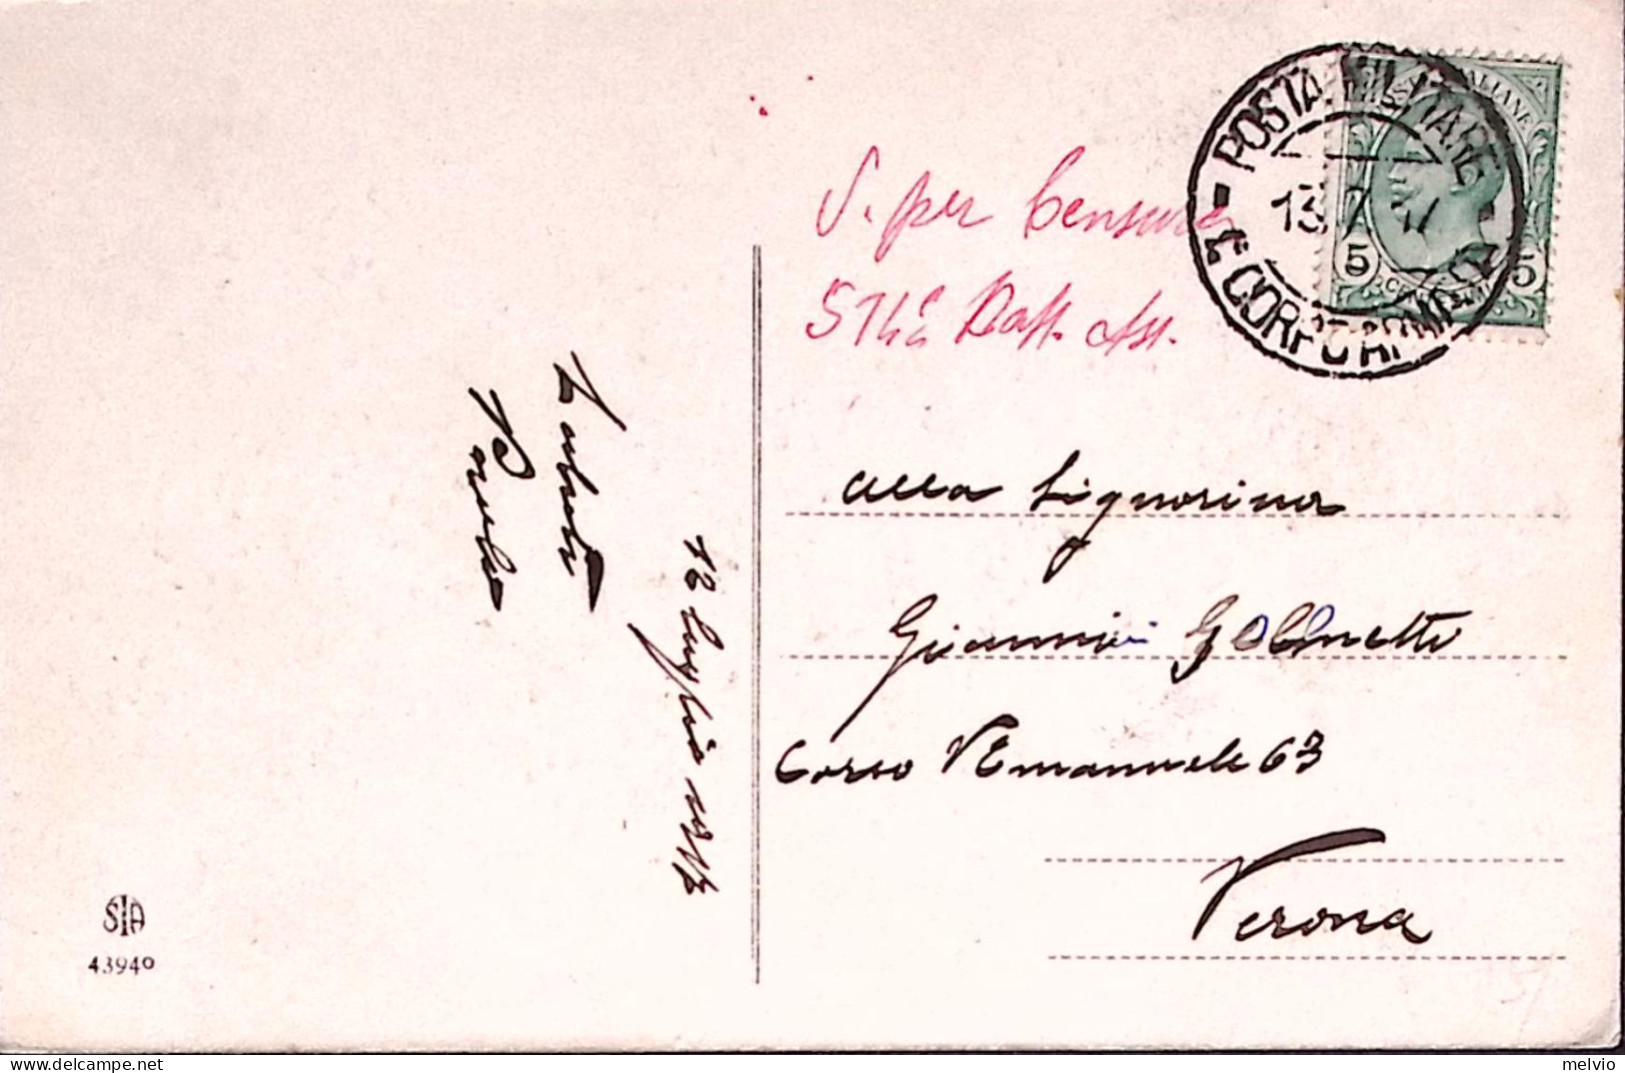 POSTA MILITARE
13 7 17
CORPO ARMATA
POSTE ITALIANE
5 CENTESIMI 5
V. per Censura
Batt.
Saluti
Paolo
12 luglio 1917
Alla Signorina
Giannina
Corso V Emanuele 63
Verona
SIA
43940
melvio